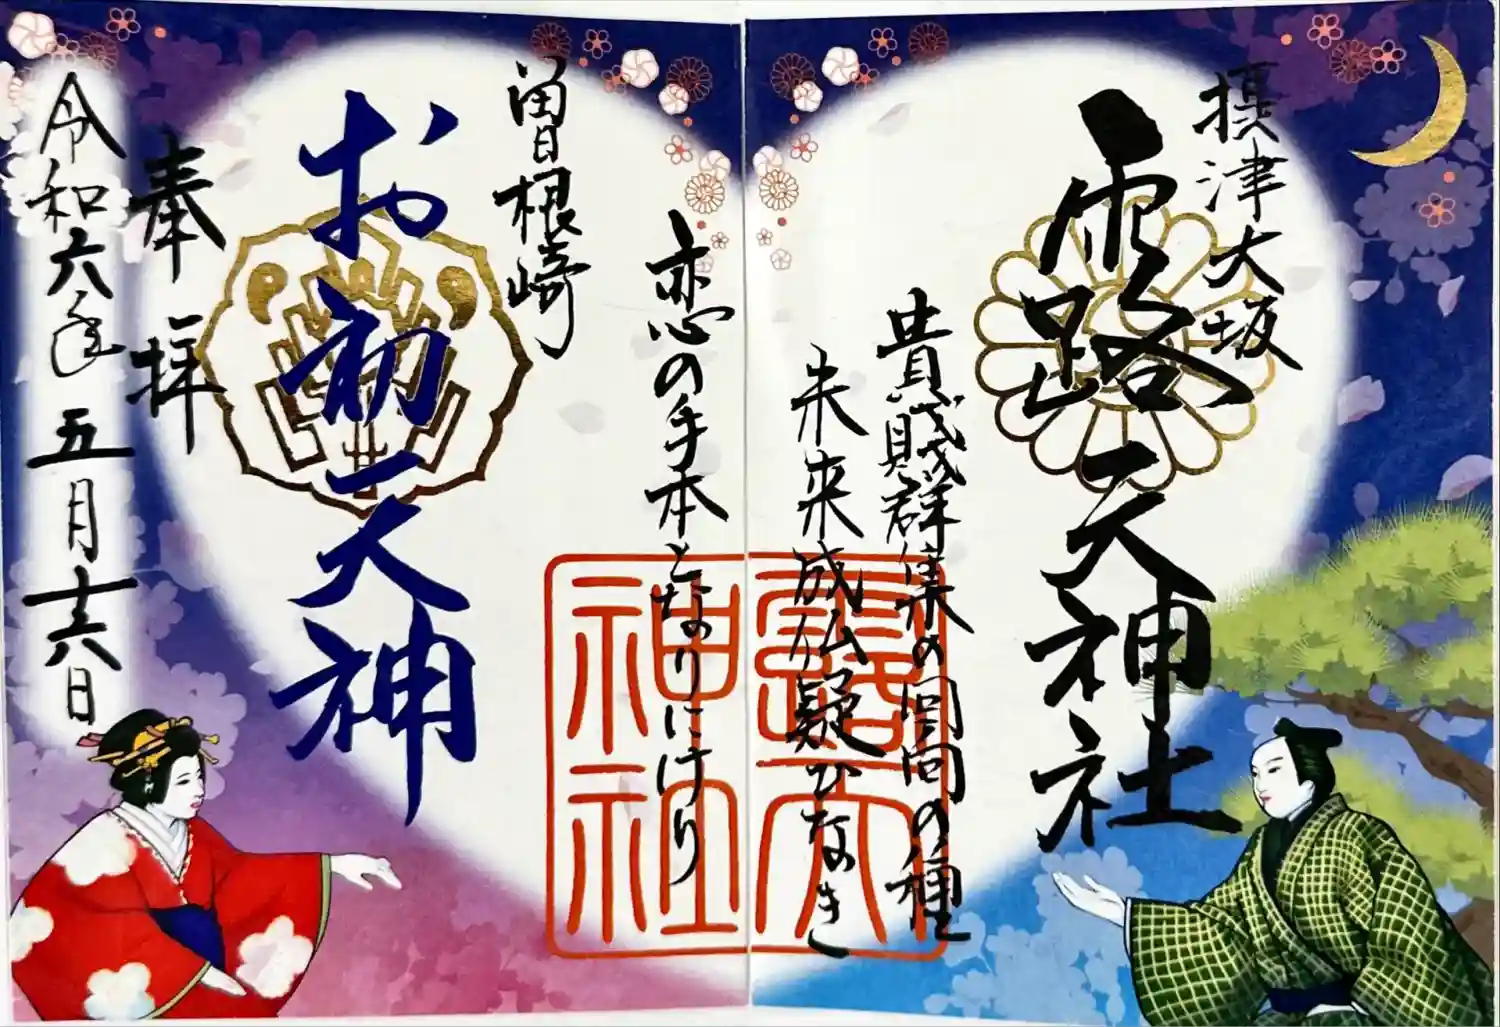 摂津大坂
露天神社
貴賎群集の回向の種
未来成仏疑ひなき
恋の手本となりにけり
曽根崎
お初天神
奉拝
令和六年五月十六日
露天
神社